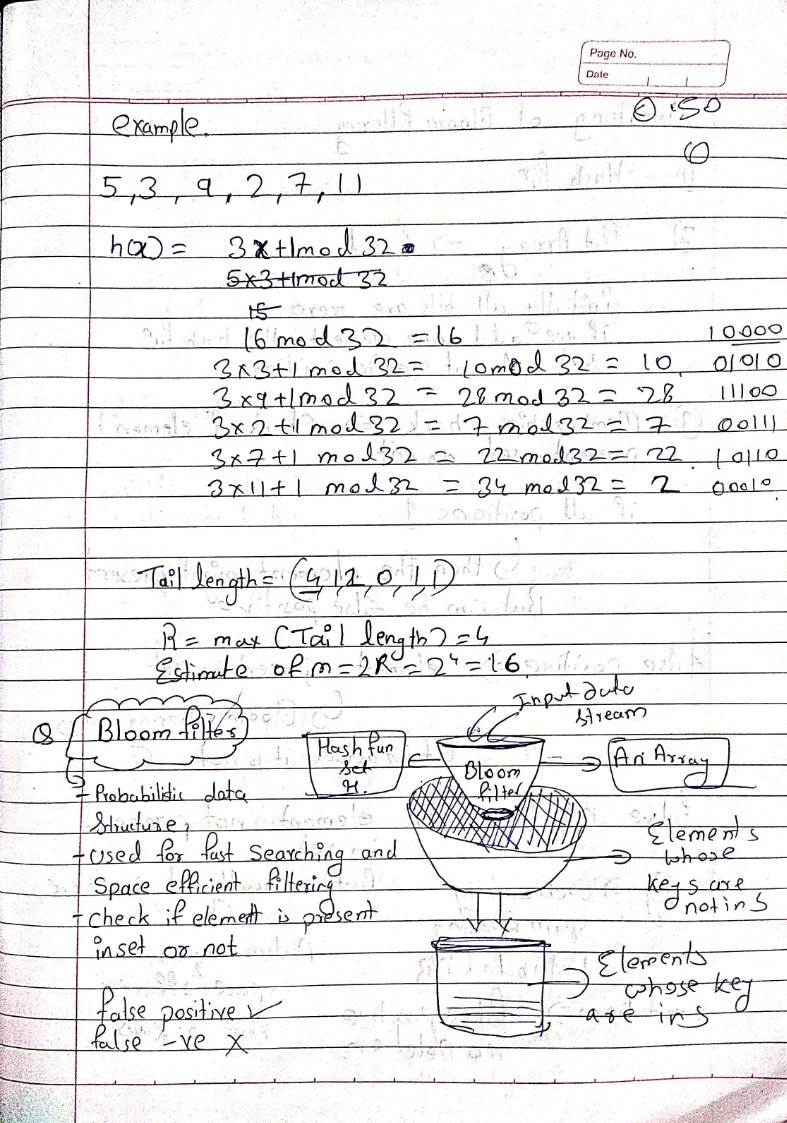 Page No.
Date
example.
5, 3, 9, 2, 7, 11
h(x) = 3x+1 mod 32
5x3+1 mod 32
15
16 mod 32 = 16 10000
3x3+1 mod 32 = 10 mod 32 = 10 01010
3x9+1 mod 32 = 28 mod 32 = 28 11100
3x2+1 mod 32 = 7 mod 32 = 7 00111
3x7+1 mod 32 = 22 mod 32 = 22 10110
3x11+1 mod 32 = 34 mod 32 = 2 00010
Tail length = (4,1,2,0,1,1)
R = max (Tail length) = 4
Estimate of m = 2R = 2⁴ = 16
Q Bloom filter
- Probabilistic data
structure,
- used for fast searching and
space efficient filtering
- check if element is present
in set or not
false positive ✓
false -ve X
Input data
stream
Hash fun
set
H.
Bloom
filter
An Array
Elements
whose
keys are
not in S
Elements
whose key
are in S